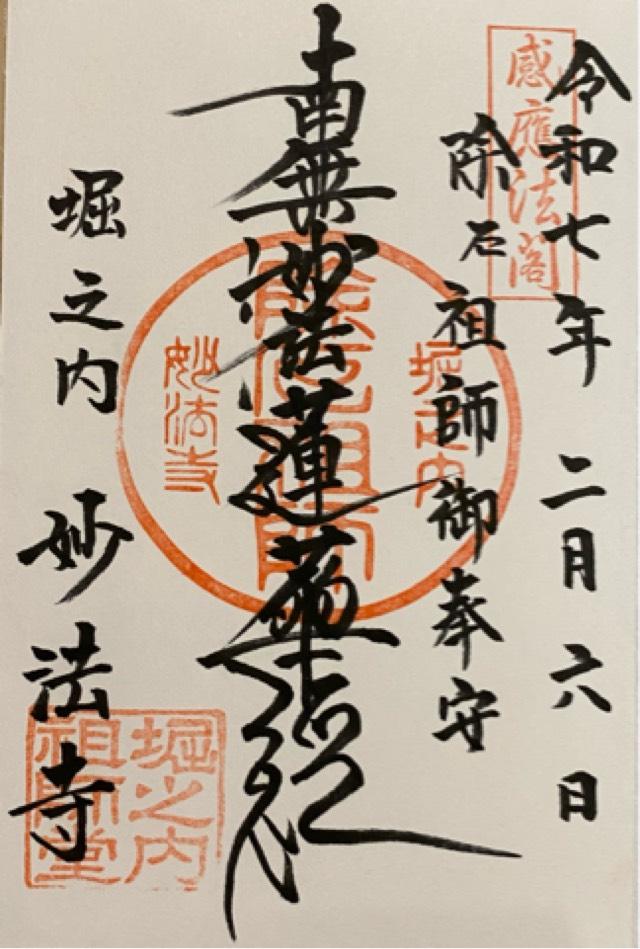 感應法閣
令和七年 二月六日
除厄祖師御奉安
南無妙法蓮華経
堀之内
除厄祖師
妙法寺
堀之内 妙法寺
堀之内
祖師堂